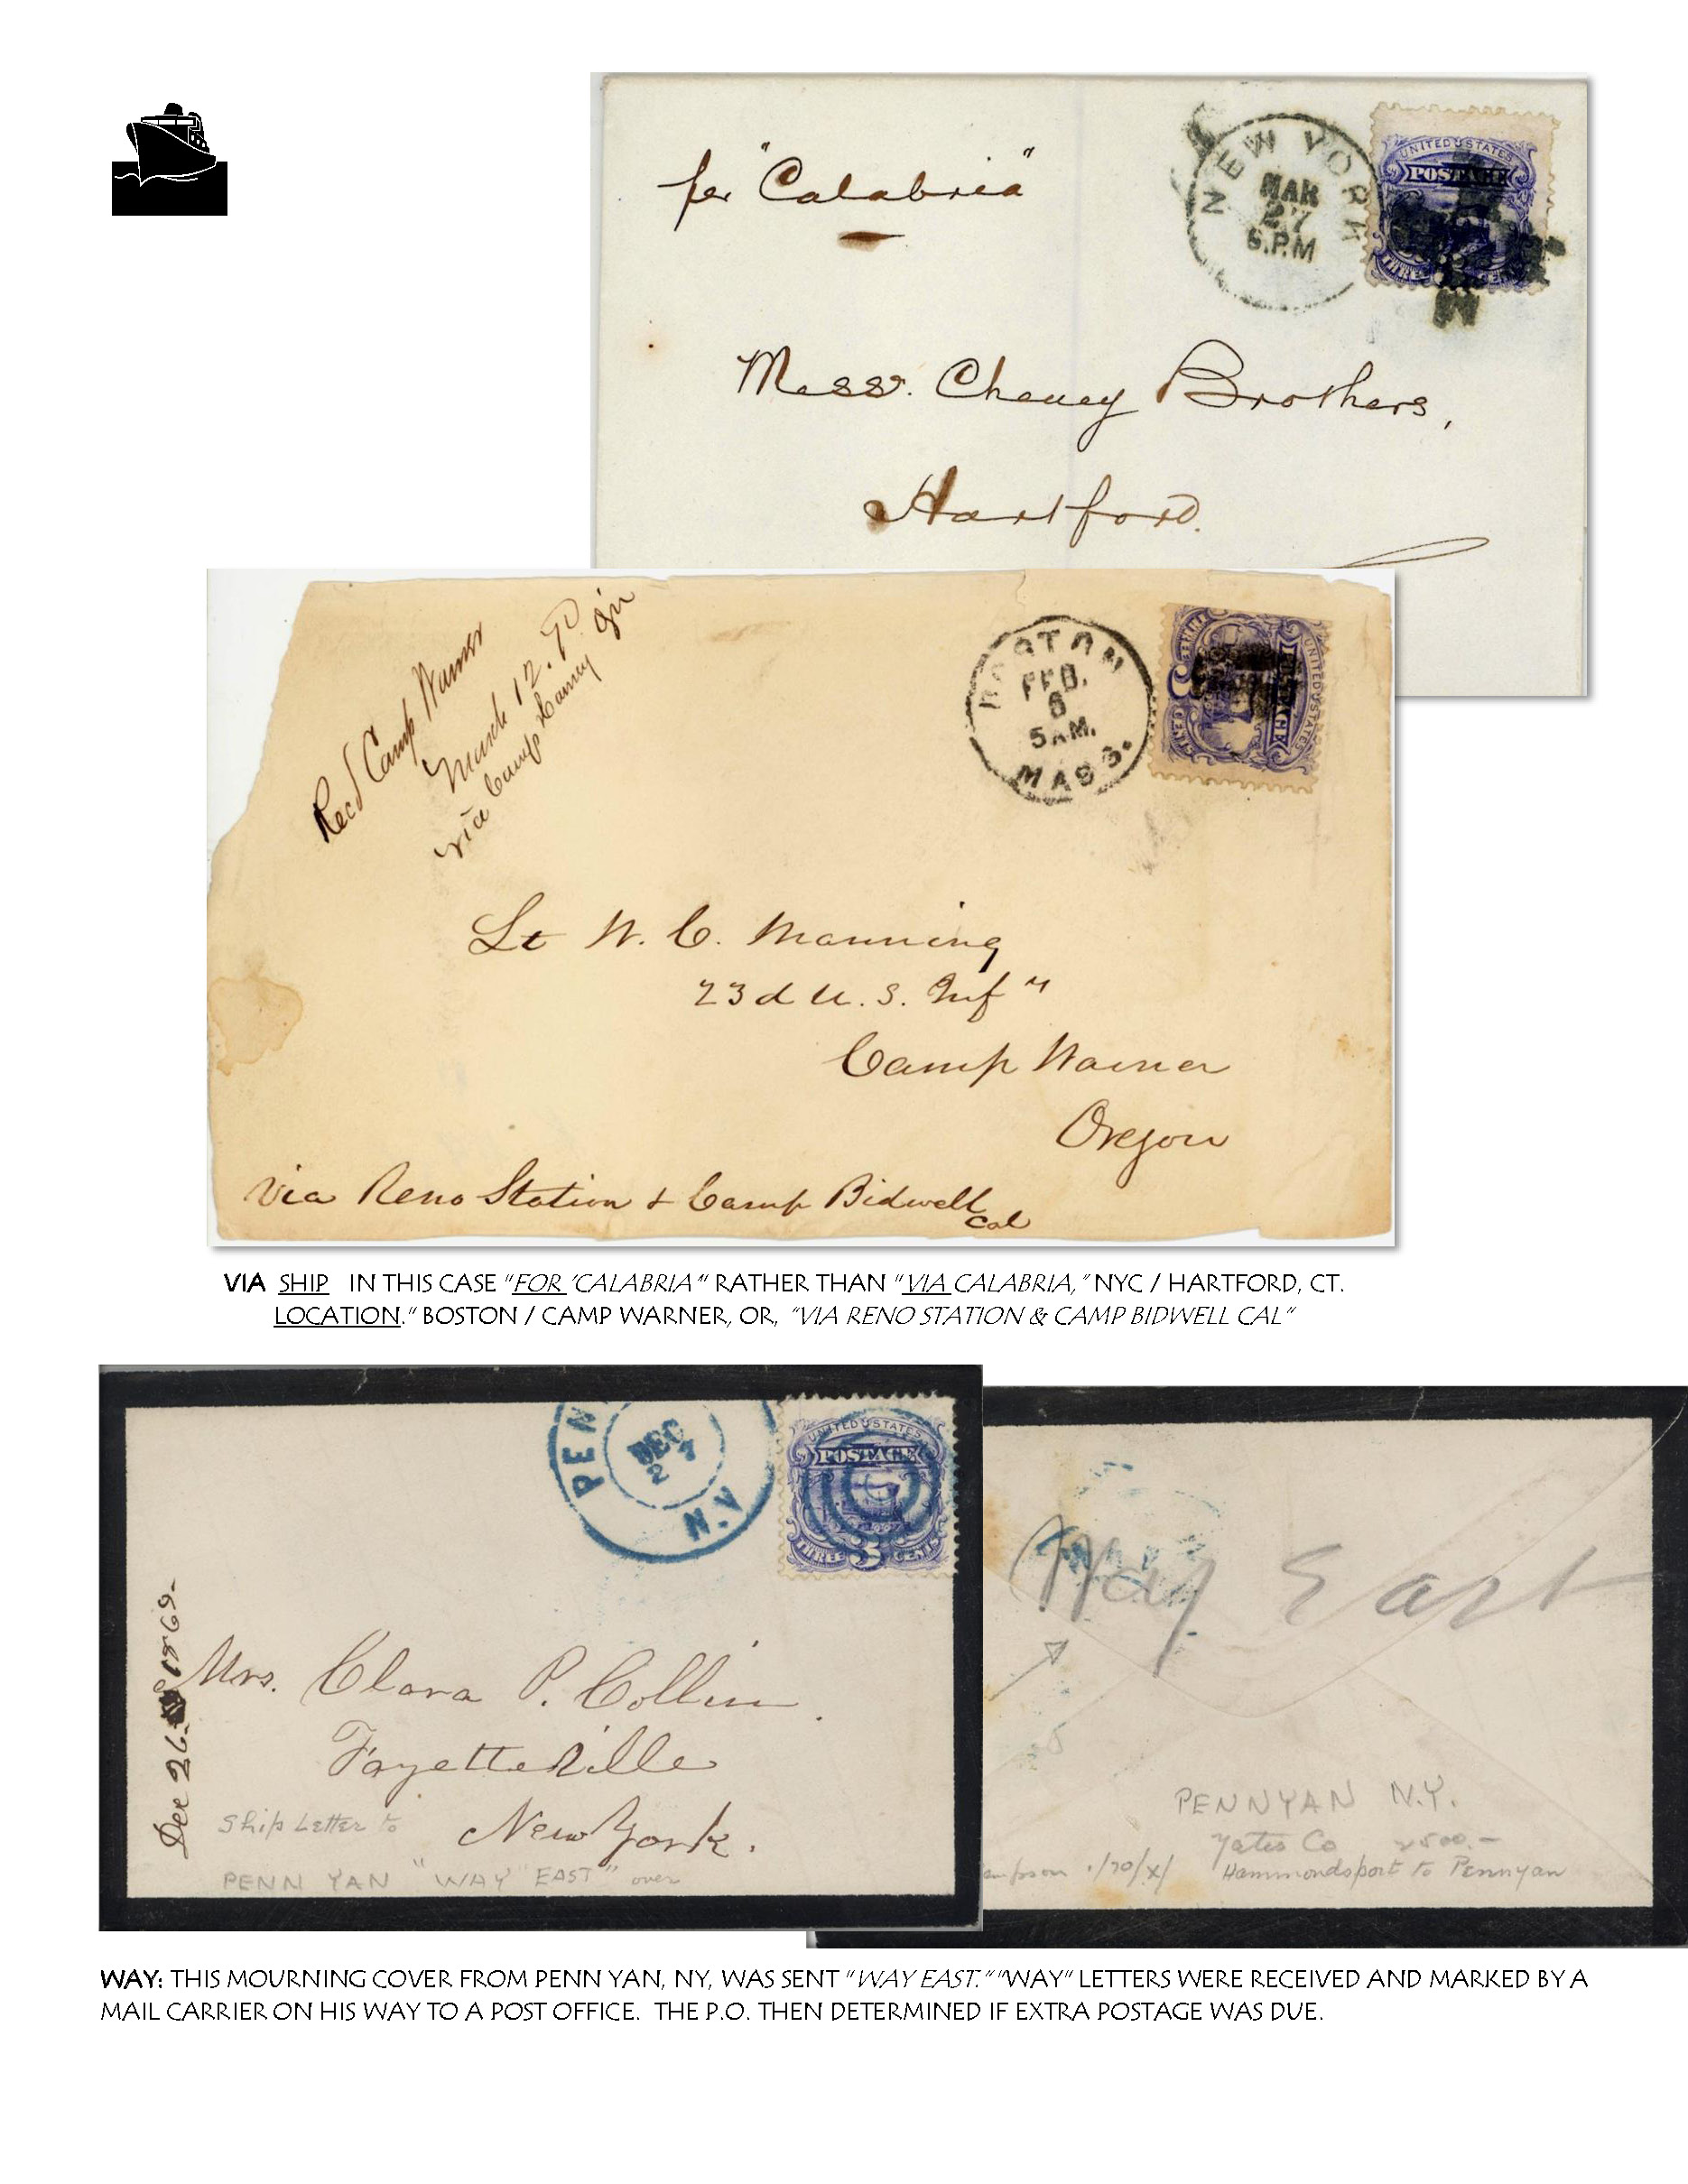 per "Calabria"
NEW YORK
MAR
27
6.P.M
UNITED STATES
POSTAGE
THREE
Mess. Cheney Brothers,
Hartford.
Recd Camp Warner
March 12. 70
via Camp Harney
BOSTON
FEB.
6
5 A.M.
MASS.
UNITED STATES
Lt W. C. Manning
23d U. S. Inf"y
Camp Warner
Oregon
Via Reno Station & Camp Bidwell
Cal
VIA SHIP IN THIS CASE "FOR 'CALABRIA'" RATHER THAN "VIA CALABRIA," NYC / HARTFORD, CT.
LOCATION." BOSTON / CAMP WARNER, OR, "VIA RENO STATION & CAMP BIDWELL CAL"
PEN
DEC
27
N.Y
UNITED STATES
POSTAGE
THREE 3 CENTS
Dec 26 1869-
Mrs. Clara P. Collin.
Fayetteville
New York.
Ship Letter to
PENN YAN "WAY EAST" over
Way East
PENNYAN N.Y.
Yates Co 2500.-
Hammondsport to Pennyan
WAY: THIS MOURNING COVER FROM PENN YAN, NY, WAS SENT "WAY EAST." "WAY" LETTERS WERE RECEIVED AND MARKED BY A
MAIL CARRIER ON HIS WAY TO A POST OFFICE. THE P.O. THEN DETERMINED IF EXTRA POSTAGE WAS DUE.